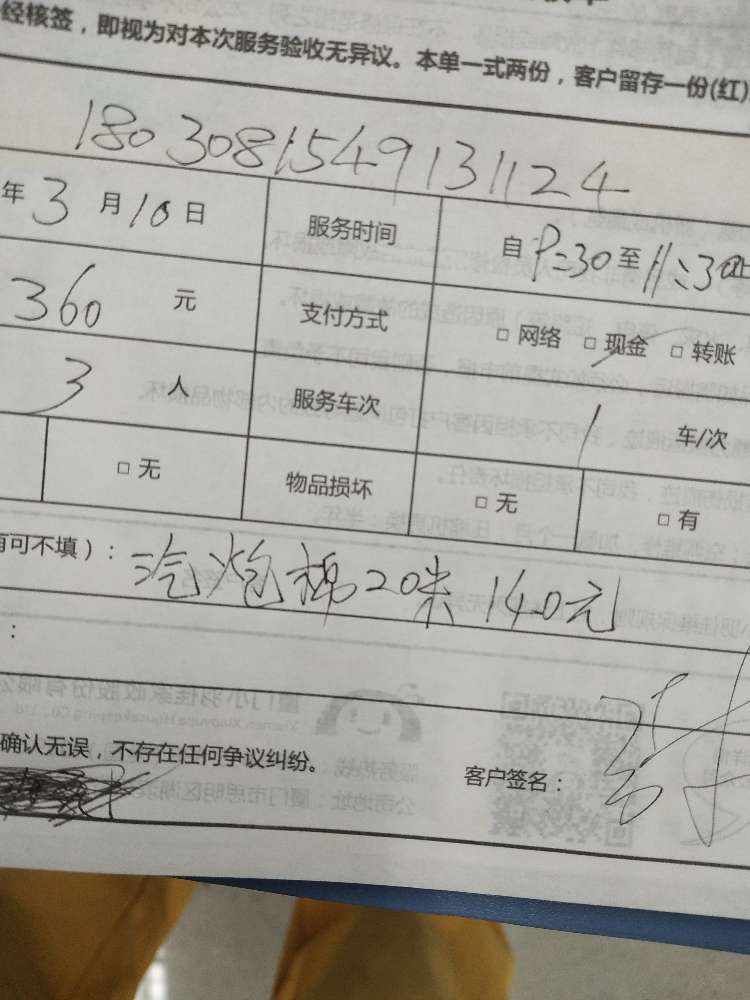 经核签，即视为对本次服务验收无异议。本单一式两份，客户留存一份(红)
180308154913 1124
年 3 月 10 日 服务时间 自 P:30 至 11:30止
360 元 支付方式 □ 网络 □ 现金 □ 转账
3 人 服务车次 1 车/次
□ 无 物品损坏 □ 无 □ 有
可不填）: 汽炮棉20米 140元
:
确认无误，不存在任何争议纠纷。 客户签名：